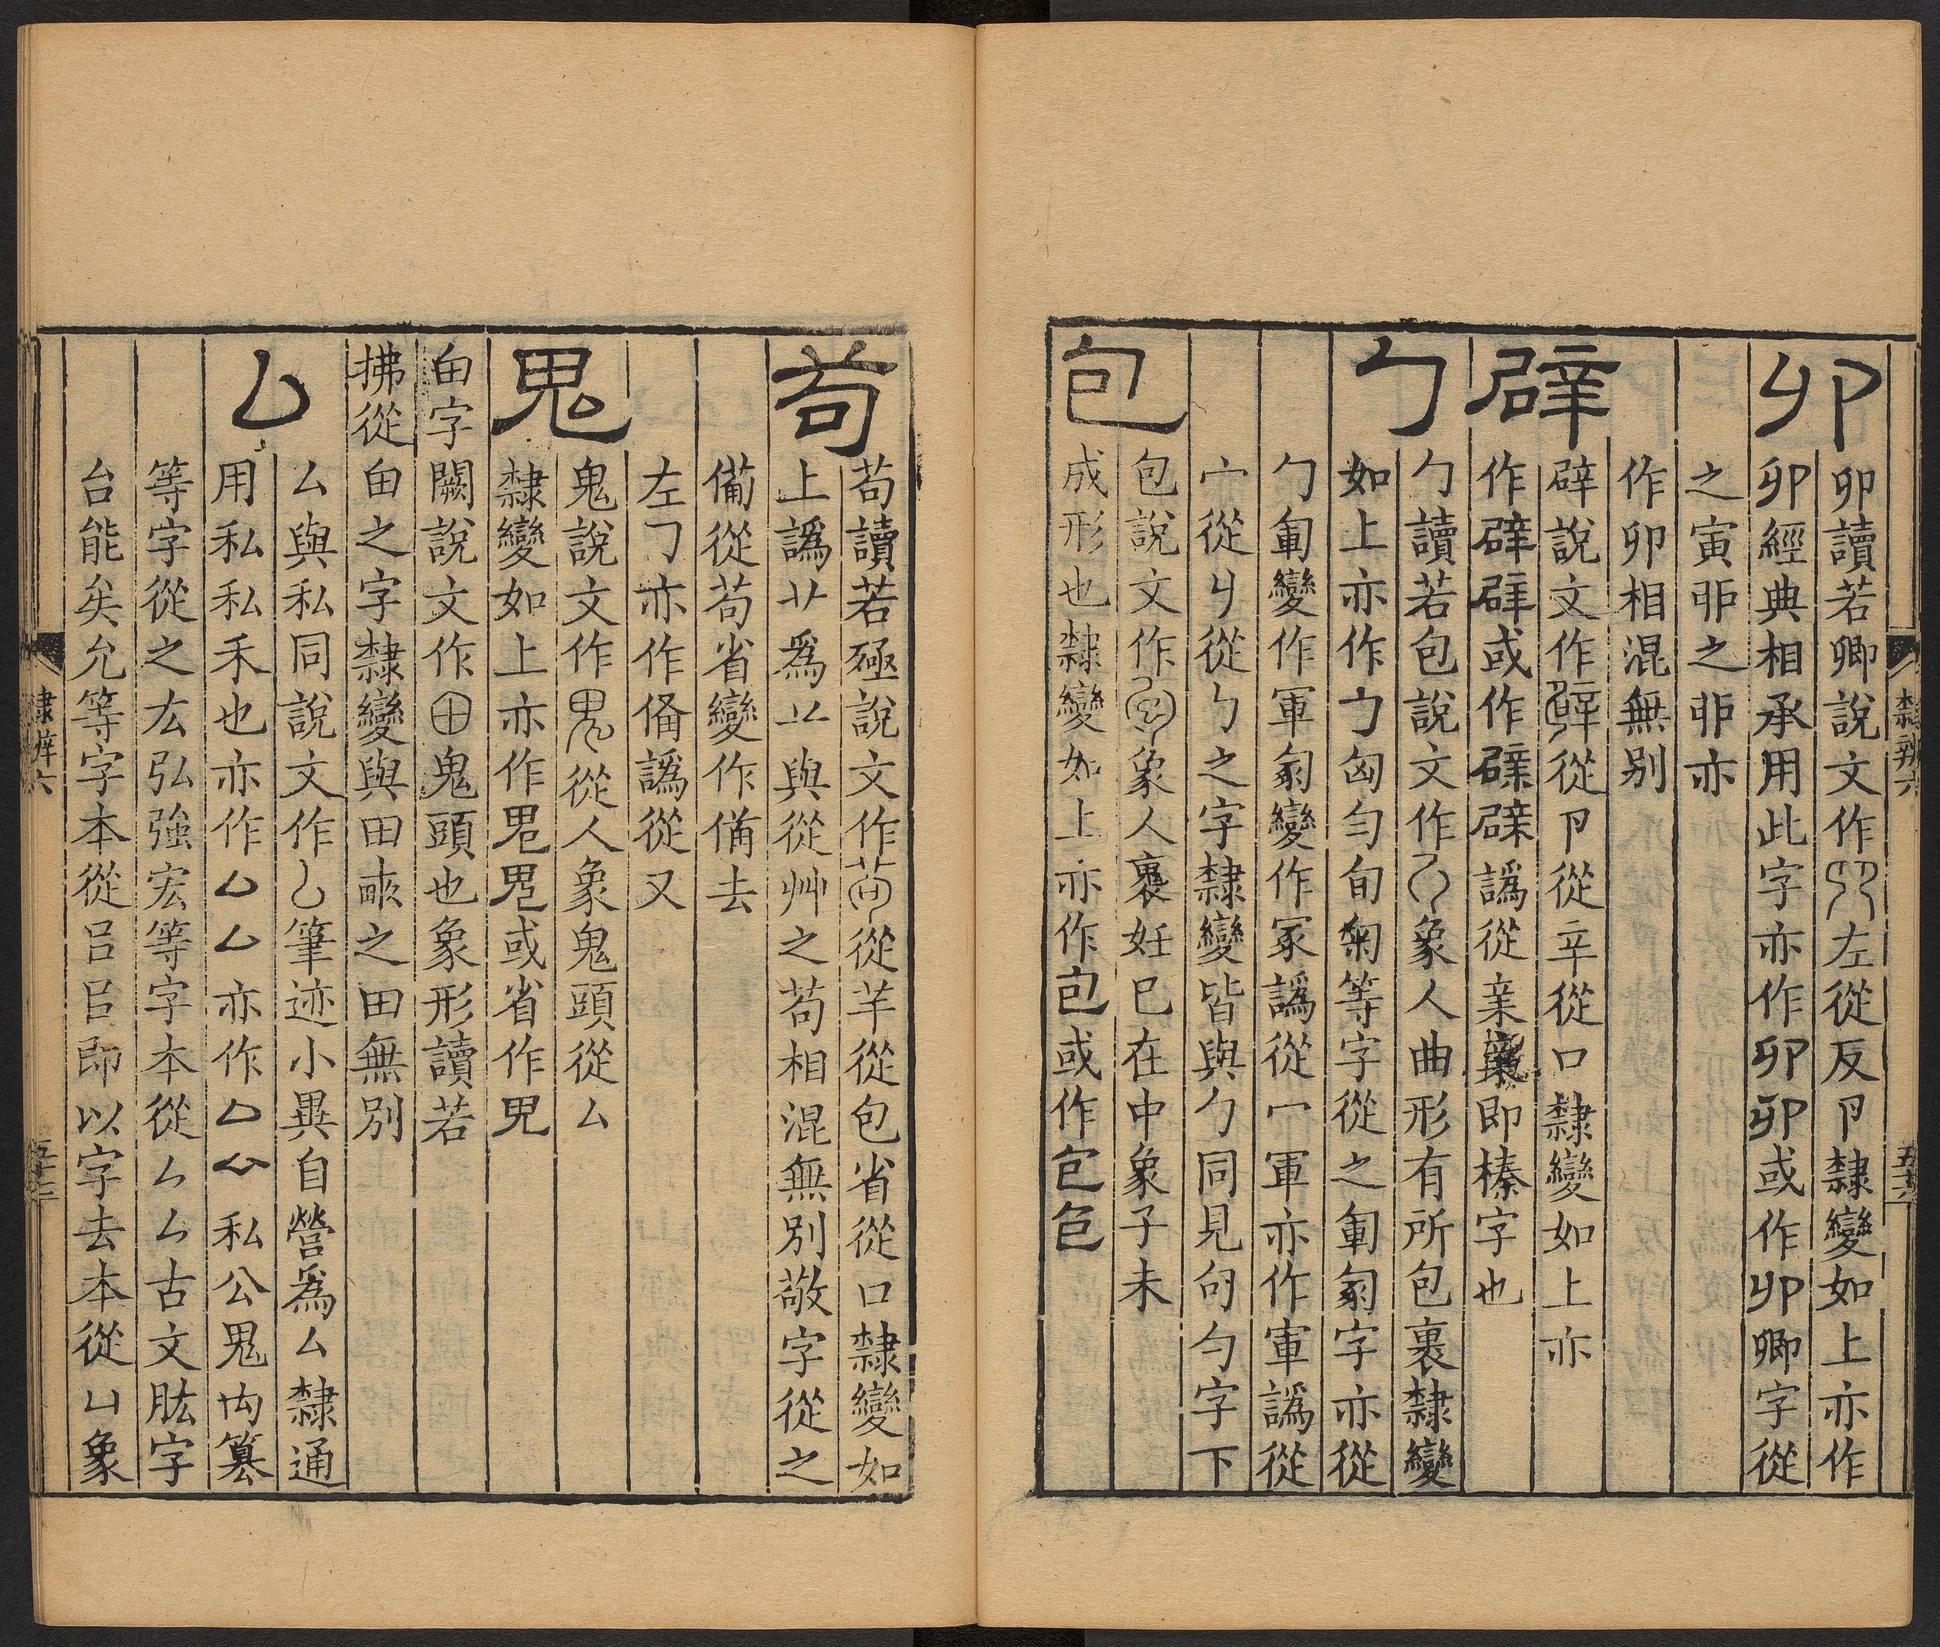 卯
卯讀若卿說文作左從反卩隸變如上亦作
卯經典相承用此字亦作卯卯或作卯卿字從
之寅丣之丣亦
作卯相混無别
辟
辟說文作從卩從辛從口隸變如上亦
作辟辟或作辟辟譌從亲即榛字也
勹
勹讀若包說文作象人曲形有所包裹隸變
如上亦作勹匈勻旬匊等字從之軍匔字亦從
勹軍變作軍匔變作冢譌從冖軍亦作軍譌從
宀從从勹之字隸變皆與勹同見句勻字下
包
包說文作象人裹妊巳在中象子未
成形也隸變如上亦作包或作包包
隸辨六
茍
茍讀若殛說文作從羊從包省從口隸變如
上譌䒑爲䒑與從艸之苟相混無別敬字從之
備從茍省變作俻去
左亦作俻譌從又
鬼
鬼說文作從人象鬼頭從厶
隸變如上亦作鬼鬼或省作鬼
甶字闕說文作鬼頭也象形讀若
拂從甶之字隸變與田畮之田無別
厶
厶與私同說文作筆迹小異自營爲厶隸通
用私私禾也亦作厶厶亦作厶厶私公鬼禸篡
等字從之厷弘強宏等字本從厶厶古文肱字
台能矣允等字本從㠯㠯即以字去本從凵象
隸辨六